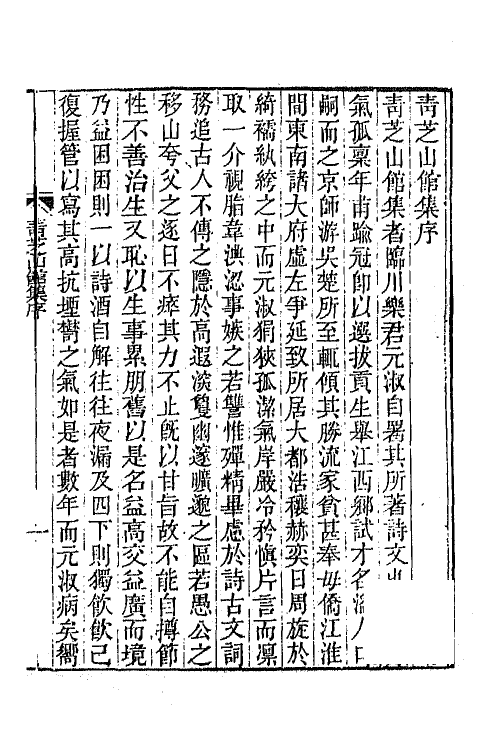 青芝山館集序
青芝山館集者臨川樂君元淑自署其所著詩文也
氣孤稟年甫踰冠卽以選拔貢生舉江西鄉試才名溢人口
嗣而之京師游吳楚所至輒傾其勝流家貧甚奉母僑江淮
間東南諸大府虛左爭延致所居大都浩穰赫奕日周旋於
綺襦紈絝之中而元淑狷狹孤潔氣岸嚴冷矜慎片言而凜
取一介視脂韋澳涊事嫉之若讐惟殫精畢慮於詩古文詞
務追古人不傳之隱於高遐淡夐幽邃曠邈之區若愚公之
移山夸父之逐日不瘁其力不止旣以甘旨故不能自撙節
性不善治生又恥以生事累朋舊以是名益高交益廣而境
乃益困困則一以詩酒自解往往夜漏及四下則獨飮飮已
復握管以寫其高抗堙鬱之氣如是者數年而元淑病矣嚮
青芝山館集序
一